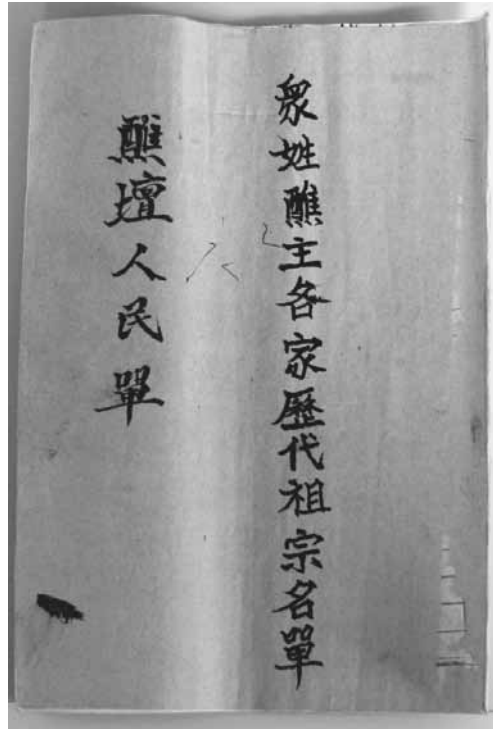 眾姓醮主各家歷代祖宗名單
醮壇人民單